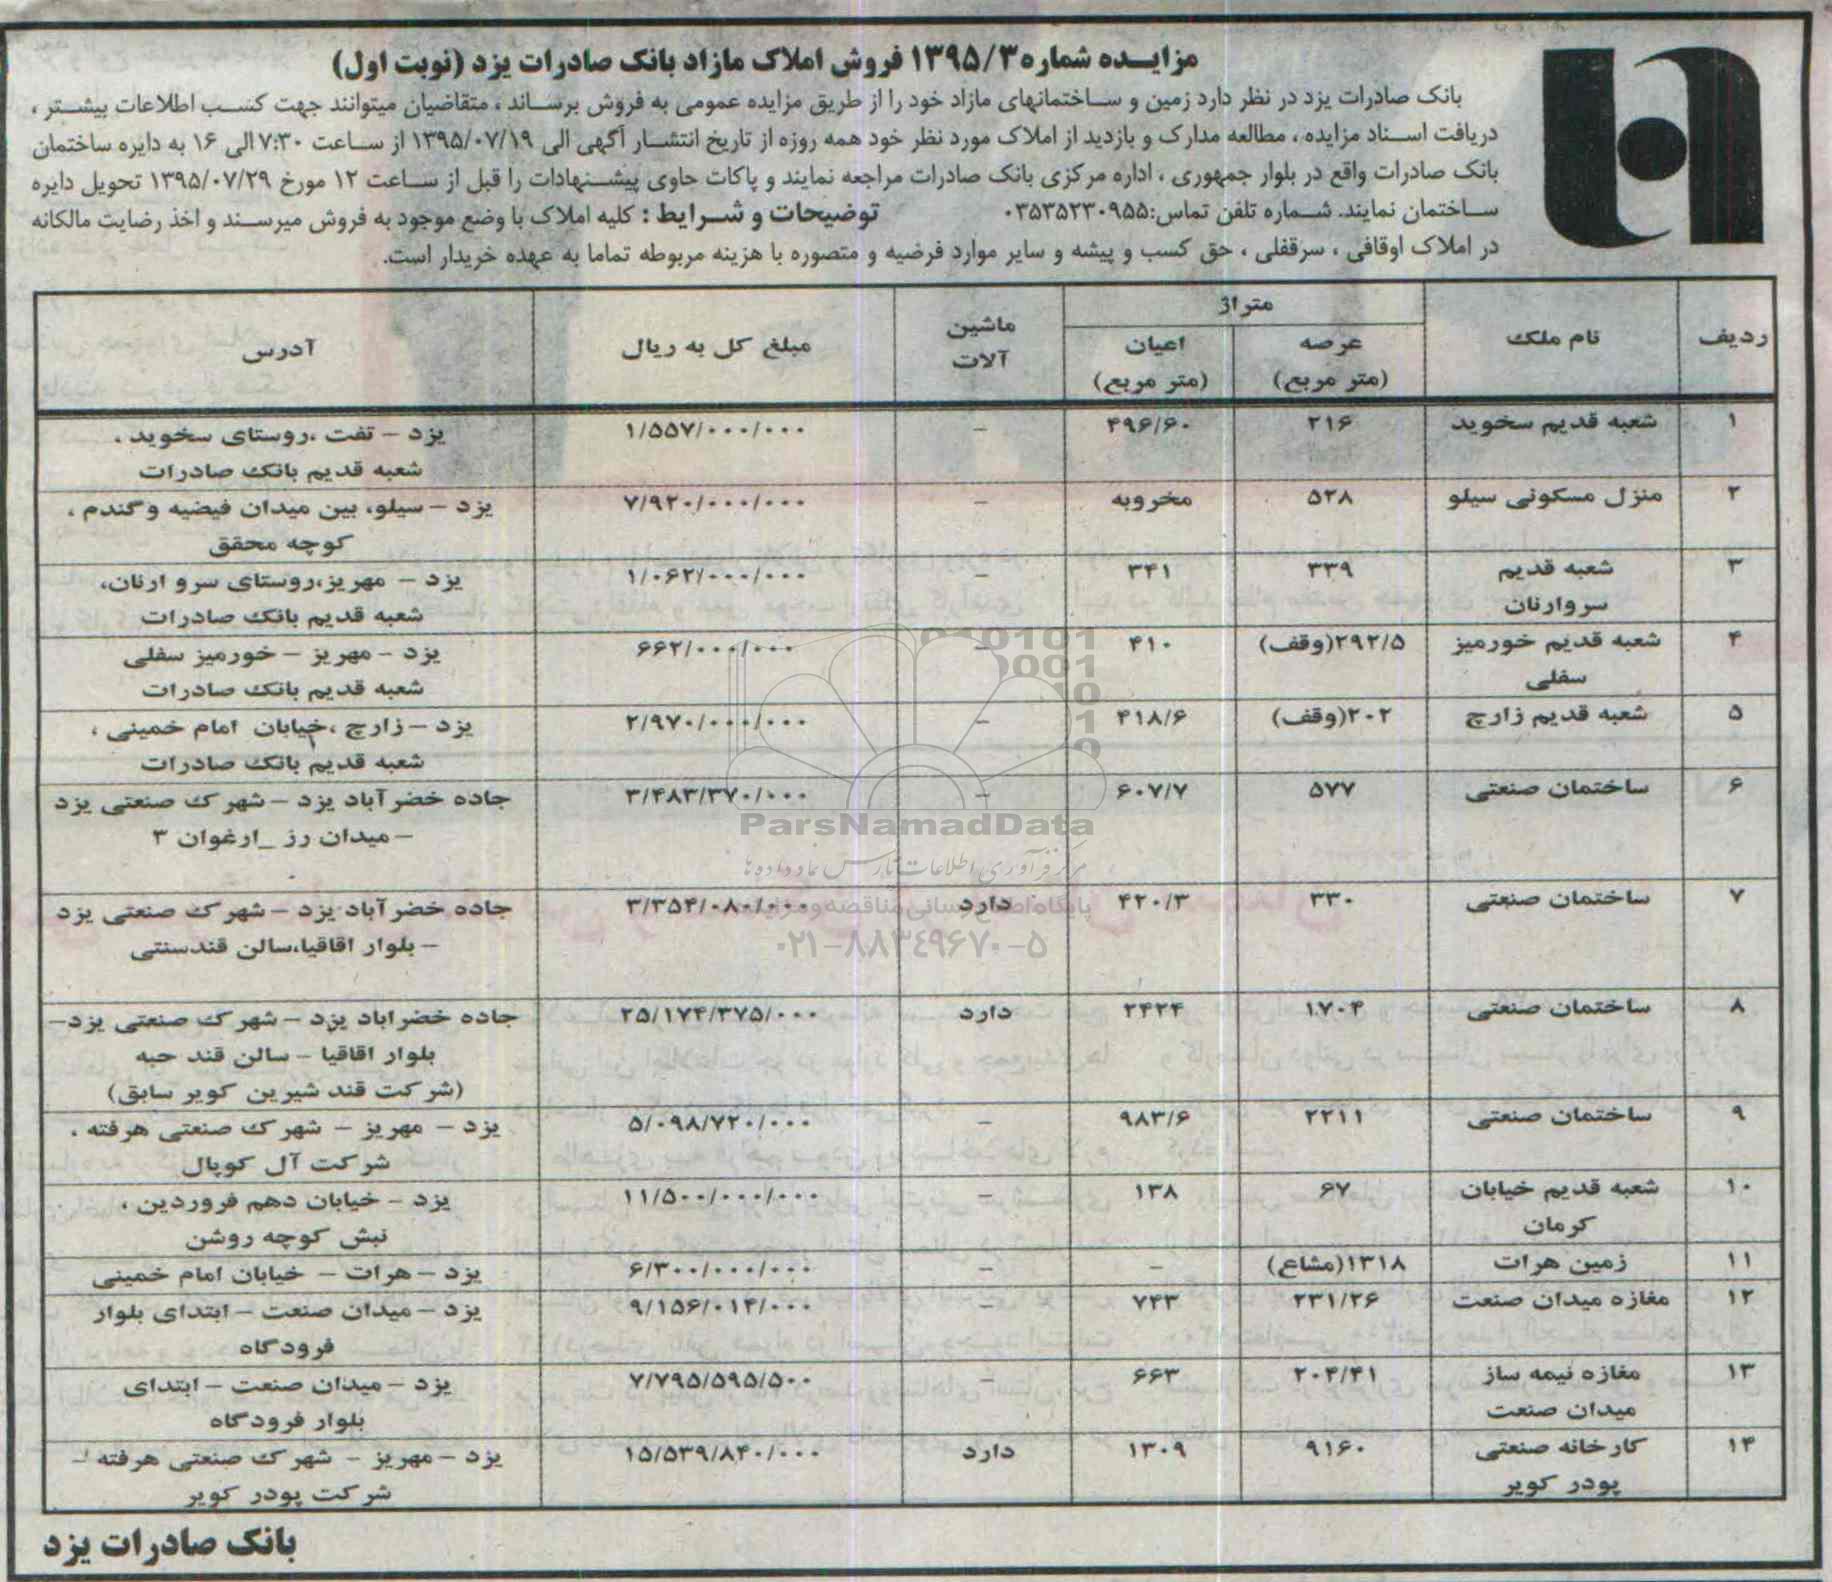 مزایده شماره ۱۳۹۵/۳ فروش املاک مازاد بانک صادرات یزد (نوبت اول)
بانک صادرات یزد در نظر دارد زمین و ساختمانهای مازاد خود را از طریق مزایده عمومی به فروش برساند ، متقاضیان میتوانند جهت کسب اطلاعات بیشتر ،
دریافت اسناد مزایده ، مطالعه مدارک و بازدید از املاک مورد نظر خود همه روزه از تاریخ انتشار آگهی الی ۱۳۹۵/۰۷/۱۹ از ساعت ۷:۳۰ الی ۱۶ به دایره ساختمان
بانک صادرات واقع در بلوار جمهوری ، اداره مرکزی بانک صادرات مراجعه نمایند و پاکات حاوی پیشنهادات را قبل از ساعت ۱۲ مورخ ۱۳۹۵/۰۷/۲۹ تحویل دایره
ساختمان نمایند. شماره تلفن تماس:۰۳۵۳۵۲۳۰۹۵۵ توضیحات و شرایط : کلیه املاک با وضع موجود به فروش میرسند و اخذ رضایت مالکانه
در املاک اوقافی ، سرقفلی ، حق کسب و پیشه و سایر موارد فرضیه و متصوره با هزینه مربوطه تماما به عهده خریدار است.
ردیف نام ملک متراژ ماشین آلات مبلغ کل به ریال آدرس
عرصه (متر مربع) اعیان (متر مربع)
۱ شعبه قدیم سخوید ۲۱۶ ۴۹۶/۶۰ – ۱/۵۵۷/۰۰۰/۰۰۰ یزد – تفت ،روستای سخوید ،
شعبه قدیم بانک صادرات
۲ منزل مسکونی سیلو ۵۲۸ مخروبه – ۷/۹۲۰/۰۰۰/۰۰۰ یزد – سیلو، بین میدان فیضیه و گندم ،
کوچه محقق
۳ شعبه قدیم ۳۳۹ ۳۴۱ – ۱/۰۶۲/۰۰۰/۰۰۰ یزد – مهریز،روستای سرو ارنان،
سروارنان شعبه قدیم بانک صادرات
۴ شعبه قدیم خورمیز ۲۹۲/۵(وقف) ۴۱۰ – ۶۶۲/۰۰۰/۰۰۰ یزد – مهریز – خورمیز سفلی
سفلی شعبه قدیم بانک صادرات
۵ شعبه قدیم زارچ ۲۰۲(وقف) ۴۱۸/۶ – ۲/۹۷۰/۰۰۰/۰۰۰ یزد – زارچ ،خیابان امام خمینی ،
شعبه قدیم بانک صادرات
۶ ساختمان صنعتی ۵۷۷ ۶۰۷/۷ – ۳/۴۸۳/۳۷۰/۰۰۰ جاده خضرآباد یزد – شهرک صنعتی یزد
– میدان رز _ارغوان ۳
۷ ساختمان صنعتی ۳۳۰ ۴۲۰/۳ دارد ۳/۳۵۴/۰۸۰/۰۰۰ جاده خضرآباد یزد – شهرک صنعتی یزد
– بلوار اقاقیا،سالن قندسنتی
۸ ساختمان صنعتی ۱۷۰۴ ۲۴۲۴ دارد ۲۵/۱۷۴/۳۷۵/۰۰۰ جاده خضراباد یزد – شهرک صنعتی یزد–
بلوار اقاقیا – سالن قند حبه
(شرکت قند شیرین کویر سابق)
۹ ساختمان صنعتی ۲۲۱۱ ۹۸۳/۶ – ۵/۰۹۸/۷۲۰/۰۰۰ یزد – مهریز – شهرک صنعتی هرفته ،
شرکت آل کوپال
۱۰ شعبه قدیم خیابان ۶۷ ۱۳۸ – ۱۱/۵۰۰/۰۰۰/۰۰۰ یزد – خیابان دهم فروردین ،
کرمان نبش کوچه روشن
۱۱ زمین هرات ۱۳۱۸(مشاع) – – ۶/۳۰۰/۰۰۰/۰۰۰ یزد – هرات – خیابان امام خمینی
۱۲ مغازه میدان صنعت ۲۳۱/۲۶ ۷۴۳ – ۹/۱۵۶/۰۱۴/۰۰۰ یزد – میدان صنعت – ابتدای بلوار
فرودگاه
۱۳ مغازه نیمه ساز ۲۰۴/۴۱ ۶۶۳ – ۷/۷۹۵/۵۹۵/۵۰۰ یزد – میدان صنعت – ابتدای
میدان صنعت بلوار فرودگاه
۱۴ کارخانه صنعتی ۹۱۶۰ ۱۳۰۹ دارد ۱۵/۵۳۹/۸۴۰/۰۰۰ یزد – مهریز – شهرک صنعتی هرفته –
پودر کویر شرکت پودر کویر
بانک صادرات یزد
ParsNamadData
مرکز فرآوری اطلاعات پارس نماد داده ها
پایگاه اطلاع رسانی مناقصه و مزایده
۰۲۱-۸۸۳۴۹۶۷۰-۵